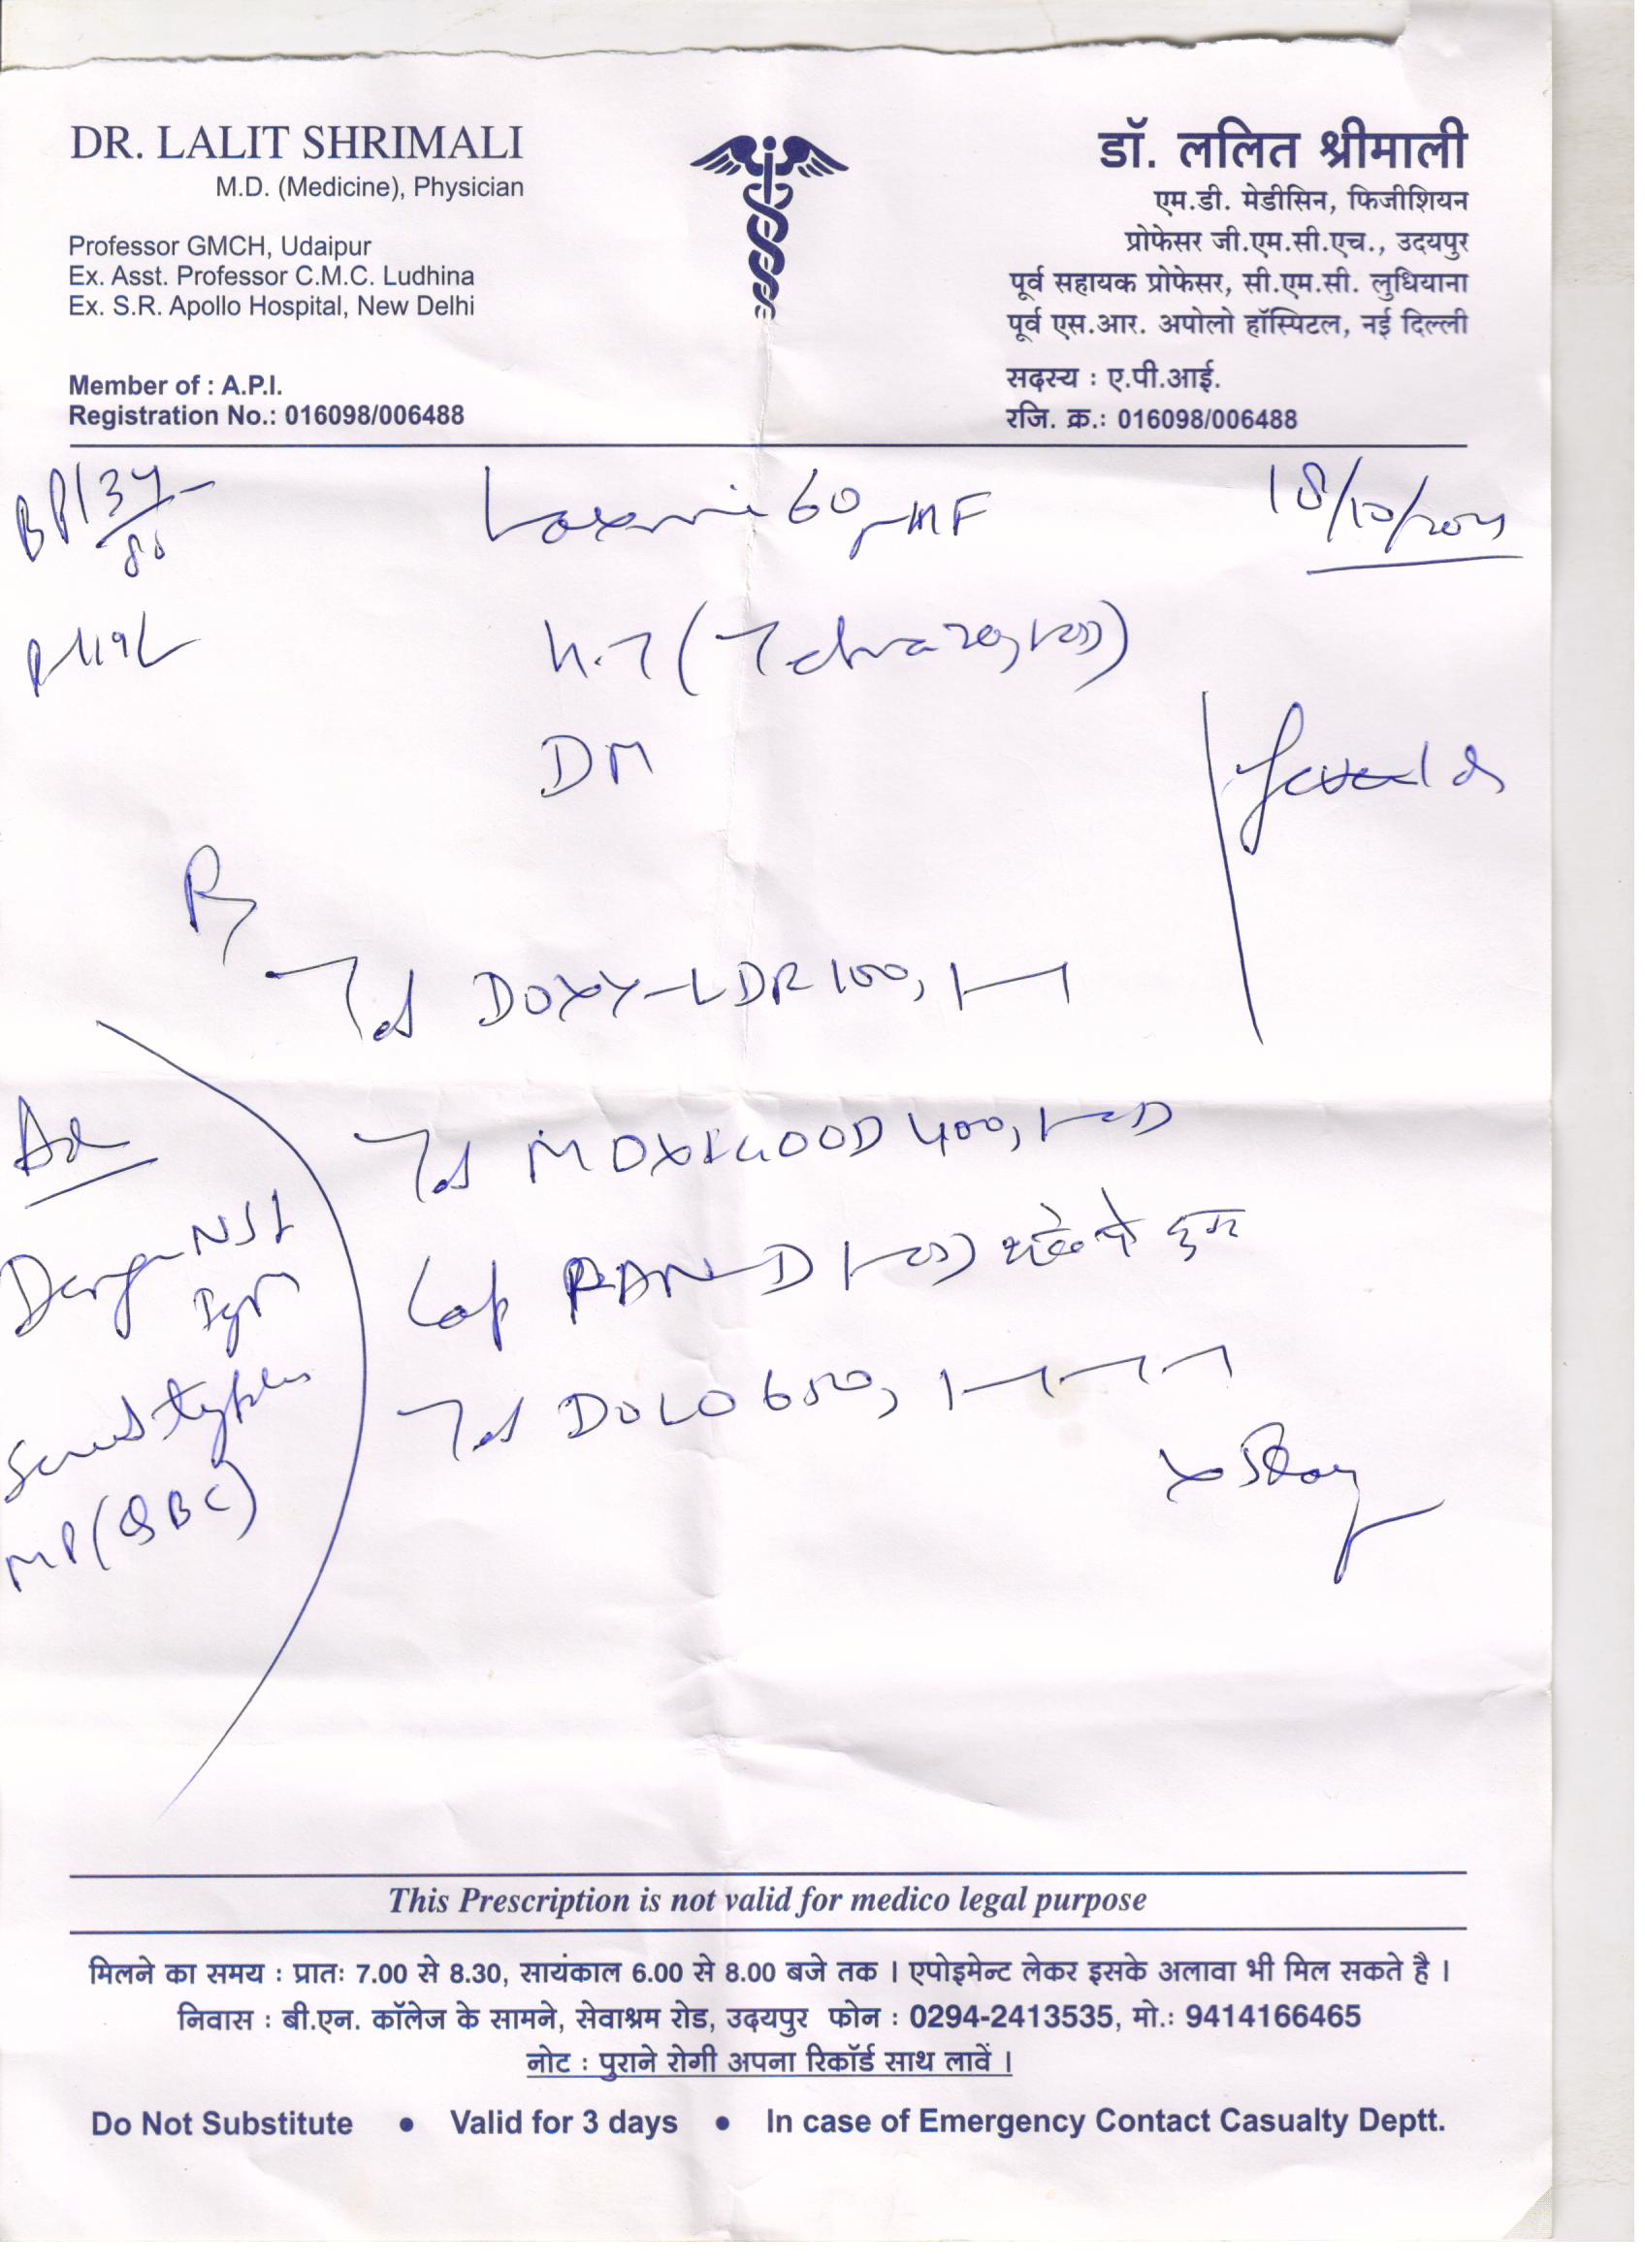 DR. LALIT SHRIMALI
M.D. (Medicine), Physician
Professor GMCH, Udaipur
Ex. Asst. Professor C.M.C. Ludhina
Ex. S.R. Apollo Hospital, New Delhi
Member of : A.P.I.
Registration No.: 016098/006488
डॉ. ललित श्रीमाली
एम.डी. मेडीसिन, फिजीशियन
प्रोफेसर जी.एम.सी.एच., उदयपुर
पूर्व सहायक प्रोफेसर, सी.एम.सी. लुधियाना
पूर्व एस.आर. अपोलो हॉस्पिटल, नई दिल्ली
सदस्य : ए.पी.आई.
रजि. क्र.: 016098/006488
BP
Laxmi 60
18/10/
DM
DOXY-LDR 100,
MOXIGOOD 400, 1-OD
Cap RAN-D 1-OD
DOLO 650, 1-1-1
NS1
IgM
MP (QBC)
x 5 Day
This Prescription is not valid for medico legal purpose
मिलने का समय : प्रातः 7.00 से 8.30, सायंकाल 6.00 से 8.00 बजे तक । एपोइमेन्ट लेकर इसके अलावा भी मिल सकते है ।
निवास : बी.एन. कॉलेज के सामने, सेवाश्रम रोड, उदयपुर फोन : 0294-2413535, मो.: 9414166465
नोट : पुराने रोगी अपना रिकॉर्ड साथ लावें ।
Do Not Substitute • Valid for 3 days • In case of Emergency Contact Casualty Deptt.